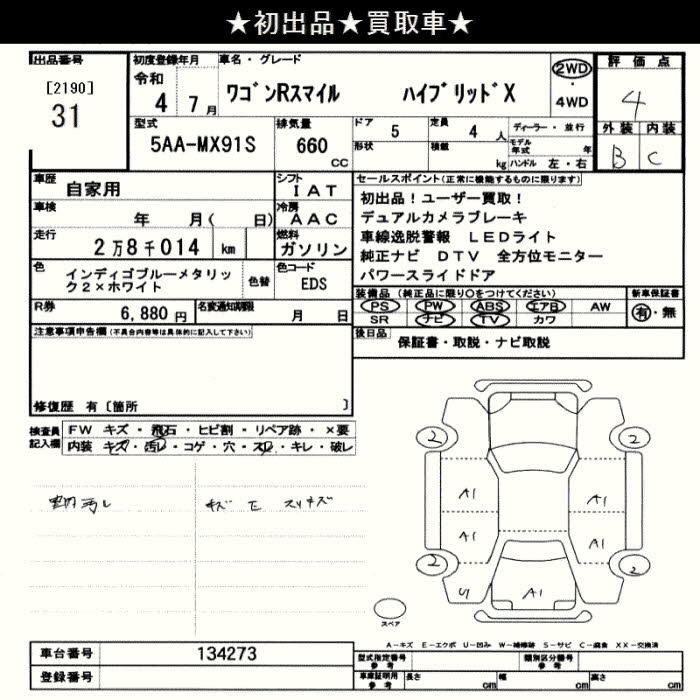 ★初出品★買取車★
出品番号
[2190]
31
初度登録年月
令和
4 7月
車名・グレード
ワゴンRスマイル ハイブリッドX
2WD
・
4WD
評価点
4
外装 内装
B C
型式
5AA-MX91S
排気量
660
CC
ドア 5
定員 4 人
形状
積載 kg
ディーラー・並行
モデル年式 年
ハンドル 左・右
車歴 自家用
シフト IAT
車検 年 月( 日)
冷房 AAC
走行 2万8千014 km
燃料 ガソリン
色 インディゴブルーメタリック2×ホワイト
色替
色コード EDS
R券 6,880円
名変通知期限 月 日
セールスポイント(正常に機能するものに限ります)
初出品!ユーザー買取!
デュアルカメラブレーキ
車線逸脱警報 LEDライト
純正ナビ DTV 全方位モニター
パワースライドドア
装備品(純正品に限り○をつけてください)
PS PW ABS エアB AW
SR ナビ TV カワ
新車保証書
有・無
後日品 保証書・取説・ナビ取説
注意事項申告欄(不具合内容等は具体的に記入して下さい)
修復歴 有〔箇所 〕
検査員記入欄
FW キズ・飛石・ヒビ割・リペア跡・×要
内装 キズ・汚レ・コゲ・穴・スレ・キレ・破レ
汚レ
キズ E スリキズ
2 2
A1 A1
A1 A1
2 2
U A1
スペア
A−キズ E−エクボ U−凹み W−補修跡 S−サビ C−腐食 XX−交換済
車台番号 134273
登録番号
型式指定番号参考
類別区分番号参考
車庫証明用参考
長さ cm
幅 cm
高さ cm